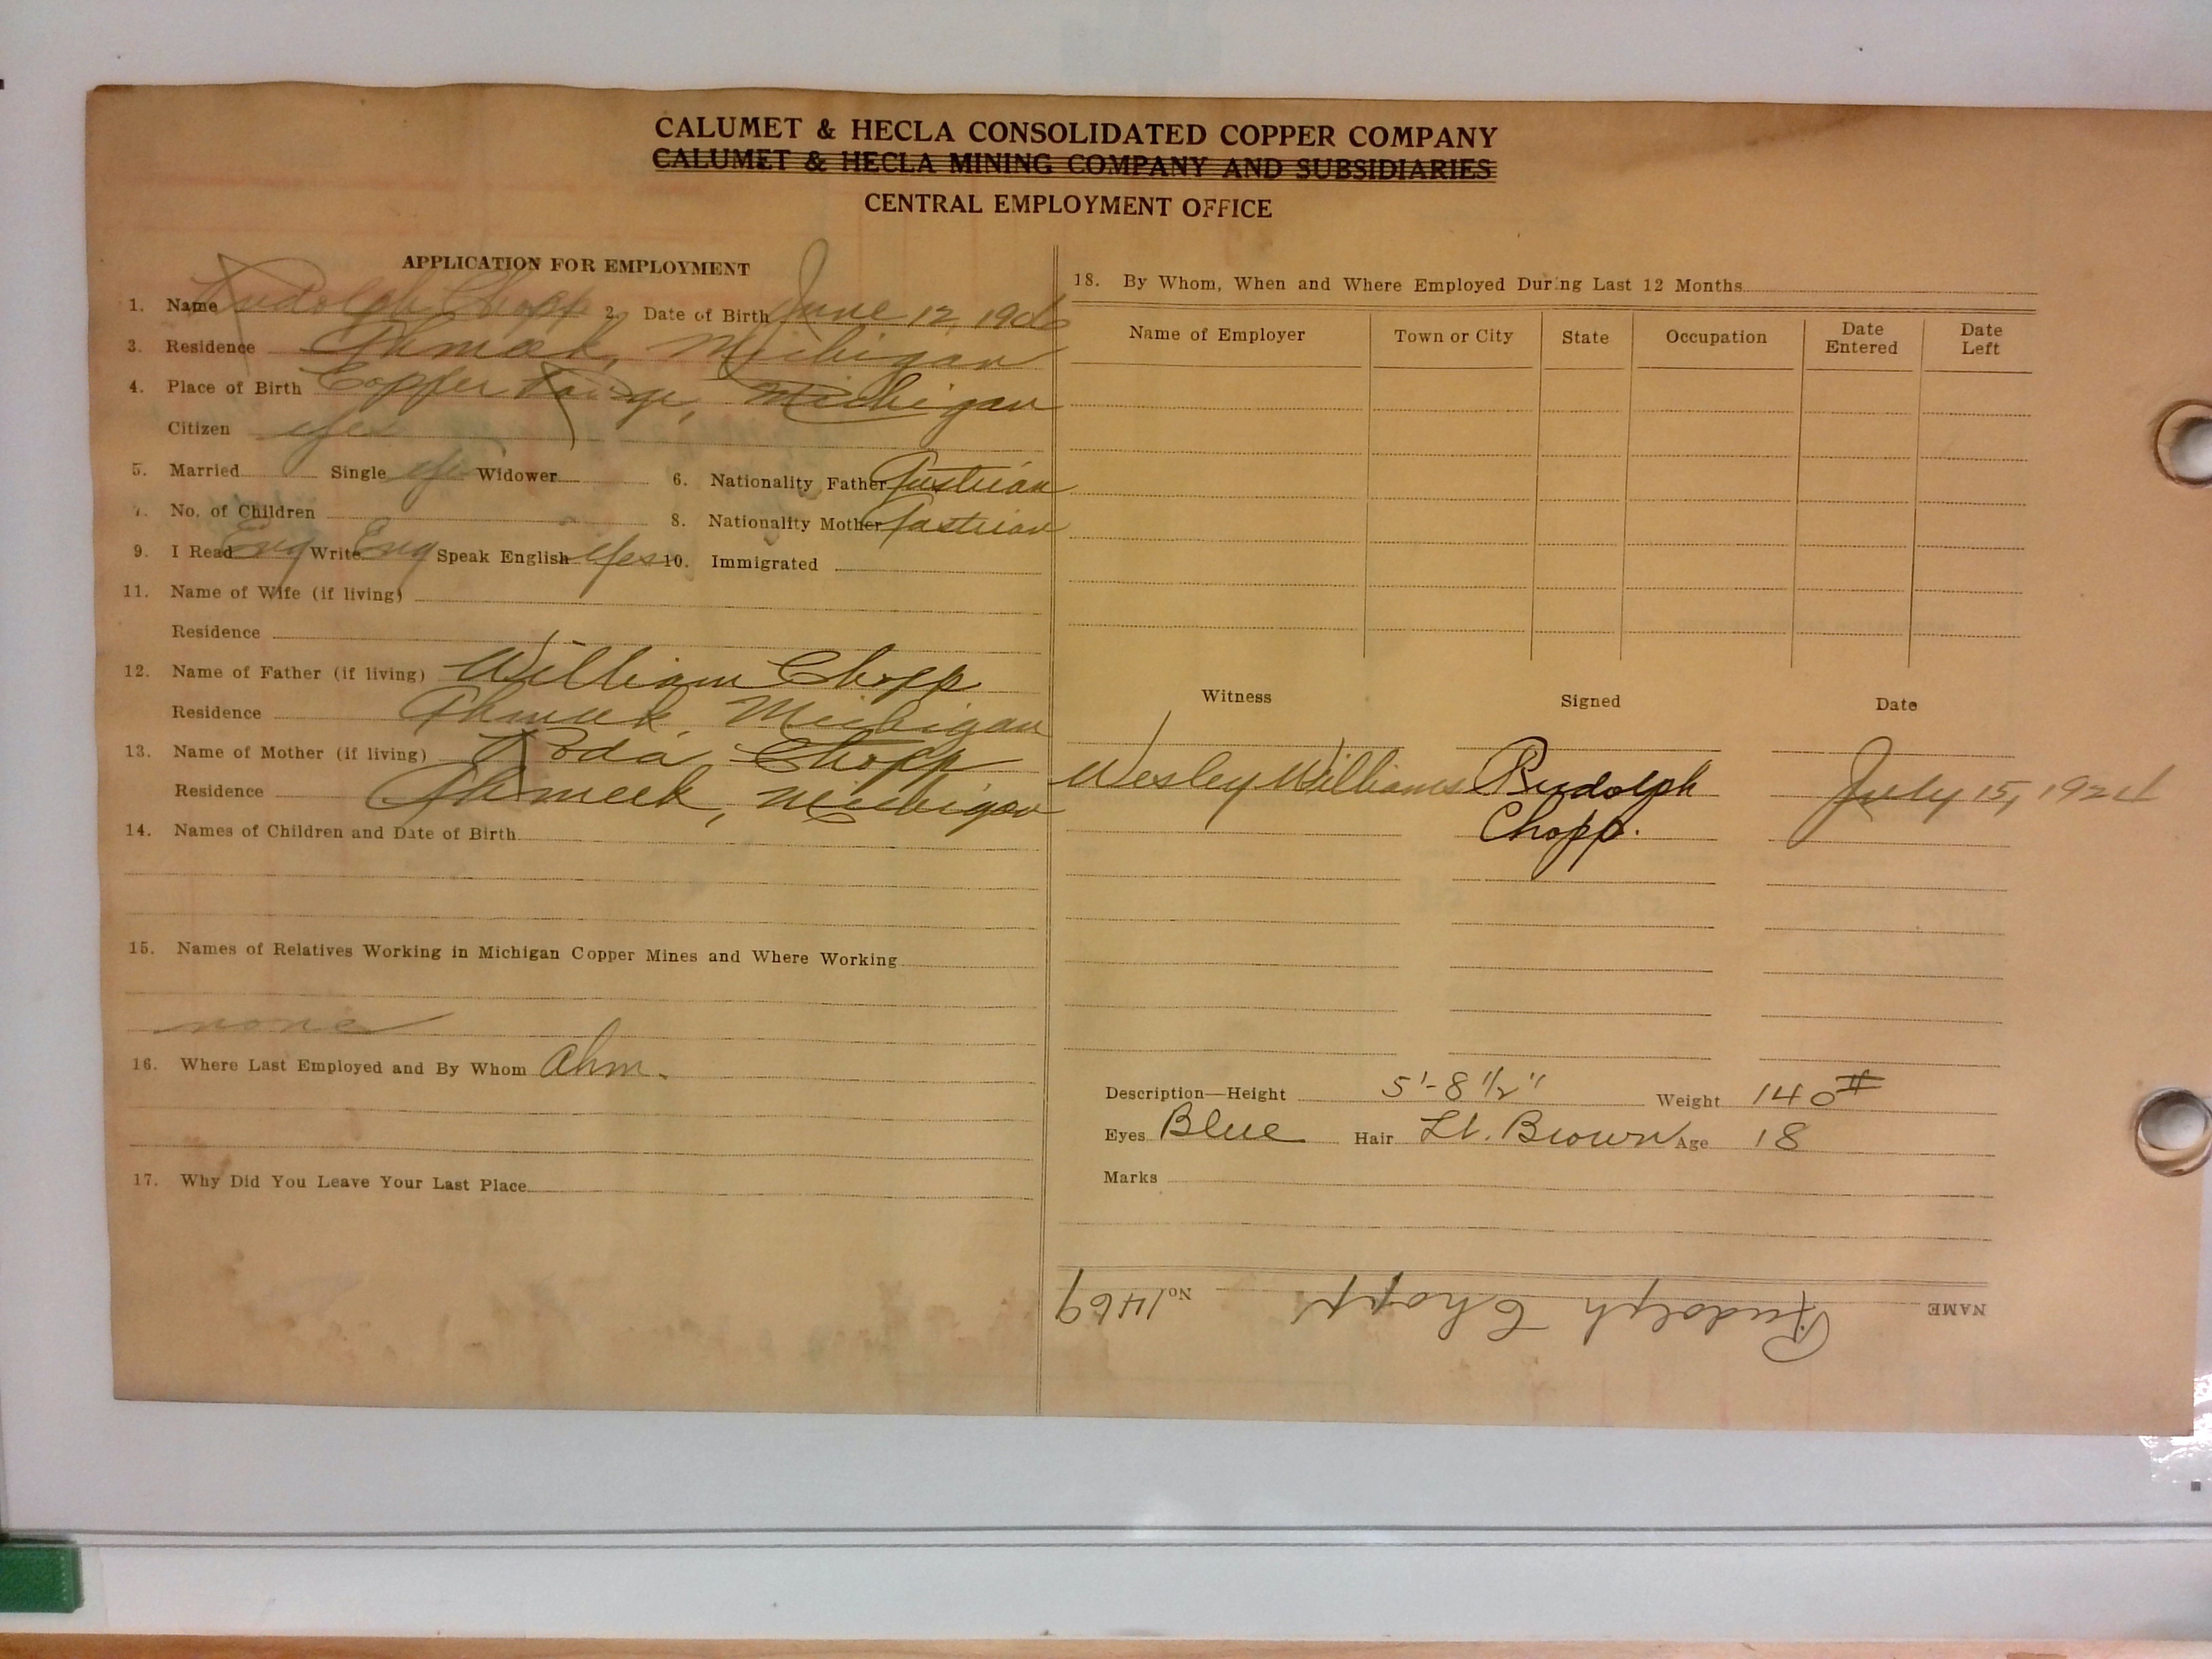 CALUMET & HECLA CONSOLIDATED COPPER COMPANY
CALUMET & HECLA MINING COMPANY AND SUBSIDIARIES
CENTRAL EMPLOYMENT OFFICE
APPLICATION FOR EMPLOYMENT
1. Name Rudolph Chopp 2. Date of Birth June 12, 1906
3. Residence Ahmeek, Michigan
4. Place of Birth Copper Range, Michigan
Citizen yes
5. Married Single yes Widower 6. Nationality Father Austrian
7. No. of Children 8. Nationality Mother Austrian
9. I Read Eng Write Eng Speak English Yes 10. Immigrated
11. Name of Wife (if living)
Residence
12. Name of Father (if living) William Chopp
Residence Ahmeek, Michigan
13. Name of Mother (if living) Roda Chopp
Residence Ahmeek, Michigan
14. Names of Children and Date of Birth
15. Names of Relatives Working in Michigan Copper Mines and Where Working
none
16. Where Last Employed and By Whom Ahm.
17. Why Did You Leave Your Last Place
18. By Whom, When and Where Employed During Last 12 Months
Name of Employer Town or City State Occupation Date Entered Date Left
Witness Signed Date
Wesley Williams Rudolph Chopp. July 15, 1924
Description—Height 5'-8 1/2" Weight 140#
Eyes Blue Hair Lt. Brown Age 18
Marks
NAME Rudolph Chopp No. 1469